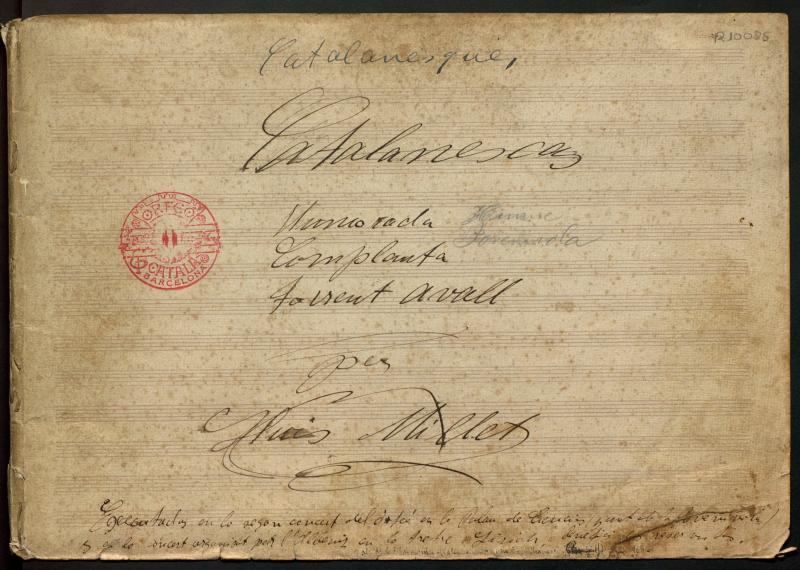 R10085
Catalanesque,
Catalanescas
Humorada
Complanta
Torrent avall
per
Lluis Millet
ORFEÓ
CATALÀ
BARCELONA
Executadas en lo segon concert del orfeó en lo Palau de Ciencias
y en lo concert organisat per l'Albeniz en lo teatre Lírich,